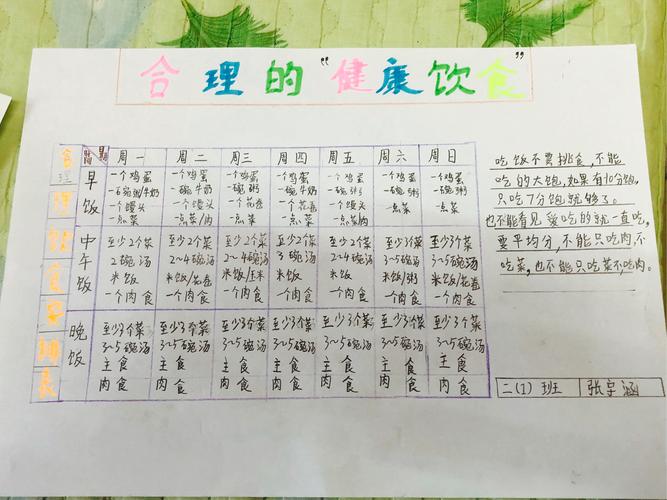 合理的“健康饮食”
合理饮食安排表
周一 周二 周三 周四 周五 周六 周日
早饭
一个鸡蛋 一个鸡蛋 一个鸡蛋 一个鸡蛋 一个鸡蛋 一个鸡蛋 一个鸡蛋
一碗粥/牛奶 一碗牛奶 一碗粥 一碗牛奶 一碗粥 一碗粥 一碗粥
一个馒头 一个馒头 一个花卷 一个花卷 一个馒头 一点菜 一点菜
一点菜 一点菜/肉 一点菜 一点菜 一点菜/肉
中午饭
至少2个菜 至少2个菜 至少2个菜 至少2个菜 至少3个菜 至少3个菜 至少3个菜
2碗汤 2~4碗汤 2~4碗汤 3碗汤 2~4碗汤 3~5碗汤 3~5碗汤
米饭 米饭/花卷 米饭/玉米 米饭 米饭 米饭/粥 米饭/花卷
一个肉食 一个肉食 一个肉食 一个肉食 一个肉食 一个肉食 一个肉食
晚饭
至少3个菜 至少3个菜 至少3个菜 至少3个菜 至少3个菜 至少3个菜 至少3个菜
3~5碗汤 3~5碗汤 3~5碗汤 3~5碗汤 3~5碗汤 3~5碗汤 3~5碗汤
主食 主食 主食 主食 主食 主食 主食
肉食 肉食 肉食 肉食 肉食 肉食 肉食
吃饭不要挑食,不能
吃的太饱,如果有10分饱,
只吃7分饱就够了。
也不能看见爱吃的就一直吃,
要平均分,不能只吃肉,不
吃菜,也不能只吃菜不吃肉。
二(1)班 张宇涵